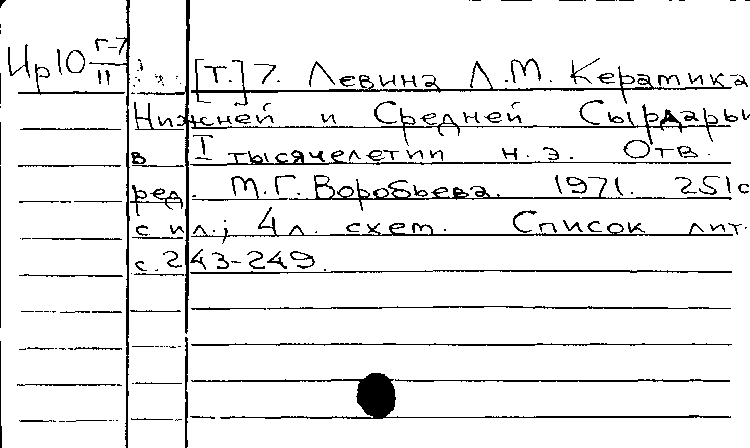 Ир10 Г-7/11 [Т.] 7. Левина Л.М. Кератика
Нижней и Средней Сырдарьи
в I тысячелетии н.э. Отв.
ред. М.Г. Воробьева. 1971. 251с
с ил.; 4 л. схем. Список лит.
с. 243-249.